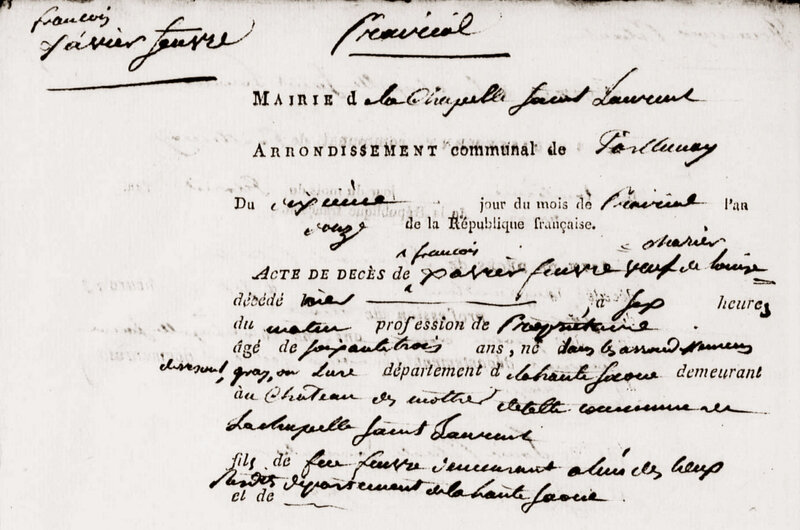 françois
Xavier feuvre
Prairial
MAIRIE de la Chapelle Saint Laurent
ARRONDISSEMENT communal de Parthenay
Du sixième jour du mois de Prairial l'an
onze de la République française.
ACTE DE DECÈS de françois xavier feuvre veuf de louise
décédé hier à six heures
du matin profession de Propriétaire
âgé de soixante trois ans, né dans les arrondissemens
de vesoul, gray, ou Lure département de la haute Saone demeurant
au Chateau des mothes de cette commune de
La chapelle Saint Laurent
fils de feu feuvre demeurant a lun des lieux
susdits département de la haute Saone
et de